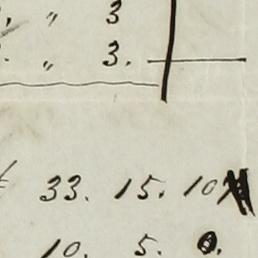 " 3
" 3.
33. 15. 10
10. 5. 0.